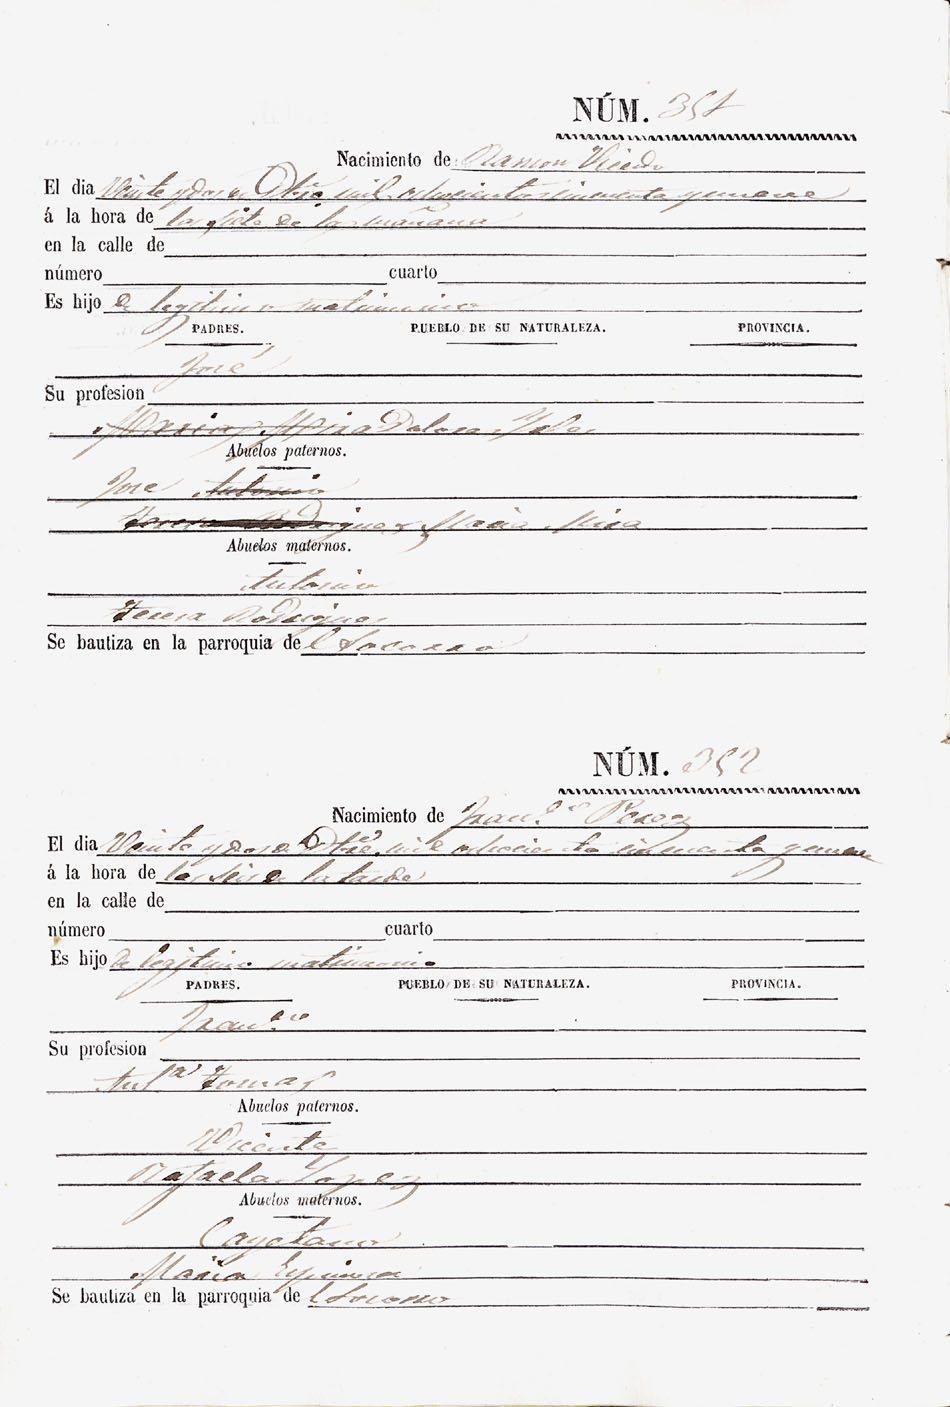 NÚM. 351
Nacimiento de Ramon
El dia Veinte y dos de Obre mil ochocientos cincuenta y nueve
á la hora de las siete de la mañana
en la calle de
número cuarto
Es hijo de legitimo matrimonio
PADRES. PUEBLO DE SU NATURALEZA. PROVINCIA.
José
Su profesion
Dolores
Abuelos paternos.
Jose Antonio
Teresa Rodriguez Maria Mira
Abuelos maternos.
Antonio
Teresa Rodriguez
Se bautiza en la parroquia de l Socorro
NÚM. 352
Nacimiento de Franco Perez
El dia Veinte y dos de Obre mil ochocientos cincuenta y nueve
á la hora de las seis de la tarde
en la calle de
número cuarto
Es hijo de legitimo matrimonio
PADRES. PUEBLO DE SU NATURALEZA. PROVINCIA.
Franco
Su profesion
Anta Tomas
Abuelos paternos.
Vicente
Rafaela Lopez
Abuelos maternos.
Cayetano
Maria Espinosa
Se bautiza en la parroquia de l Socorro